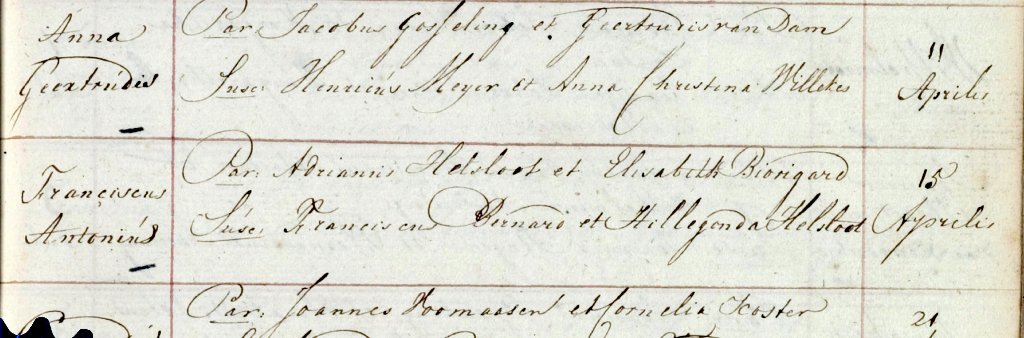 Anna
Geertrudis
Par: Jacobus Gosseling et Geertrudis van Dam
Susc: Henricus Meyer et Anna Christina Willekes
11
Aprilis
Franciscus
Antonius
Par: Adrianus Helsloot et Elisabeth Biorigard
Susc: Franciscus Bernard et Hillegonda Helsloot
15
Aprilis
Par: Joannes et Cornelia Koster
21